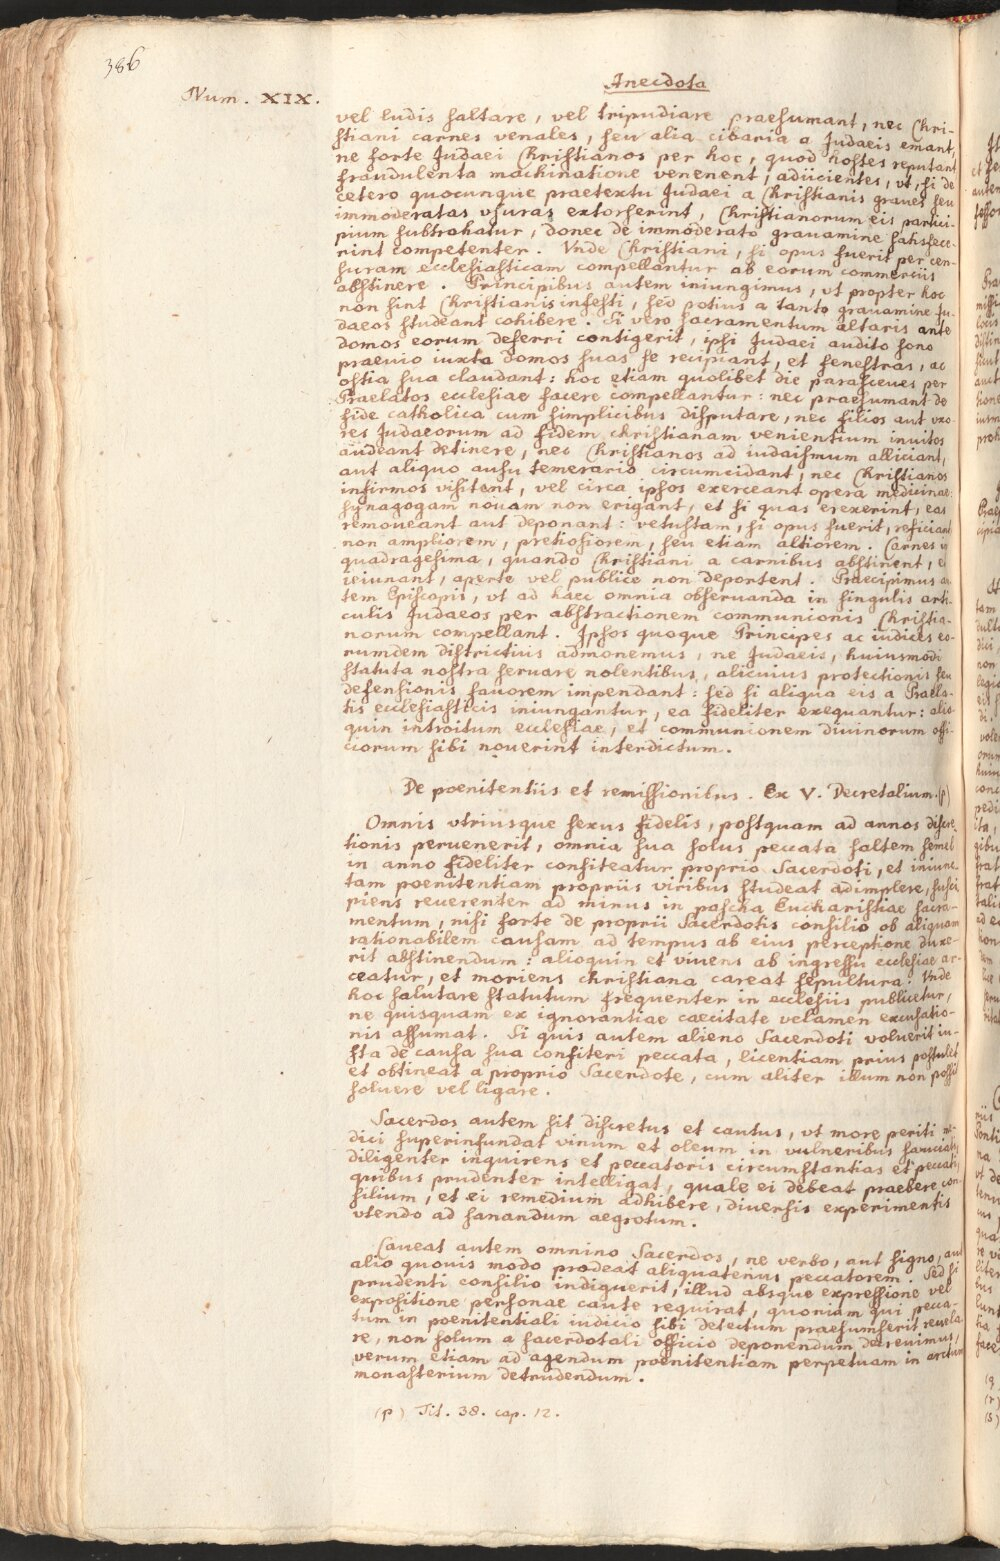 386
Anecdota
Num. XIX.
vel ludis saltare, vel tripudiare praesumant, nec Chri-
stiani carnes venales, seu alia cibaria a Judaeis emant,
ne forte Judaei Christianos per hoc, quod hostes reputant
fraudulenta machinatione venenent, adiicientes, vt, si de
cetero quocunque praetextu Judaei a Christianis graues seu
immoderatas vsuras extorserint, Christianorum eis partici-
pium subtrahatur, donec de immoderato grauamine satisfece-
rint competenter. Vnde Christiani, si opus fuerit per cen-
suram ecclesiasticam compellantur ab eorum commerciis
abstinere. Principibus autem iniungimus, vt propter hoc
non sint Christianis infesti, sed potius a tanto grauamine Ju-
daeos studeant cohibere. Si vero sacramentum altaris ante
domos eorum deferri contigerit, ipsi Judaei audito sono
praeuio iuxta domos suas se recipiant, et fenestras, ac
ostia sua claudant: hoc etiam quolibet die parasceues per
Praelatos ecclesiae facere compellantur: nec praesumant de
fide catholica cum simplicibus disputare, nec filios aut vxo-
res Judaeorum ad fidem christianam venientium inuitos
audeant detinere, nec Christianos ad iudaismum alliciant,
aut aliquo ausu temerario circumcidant, nec Christianos
infirmos visitent, vel circa ipsos exerceant opera medicinae:
synagogam nouam non erigant, et si quas erexerint, eas
remoueant aut deponant: vetustam, si opus fuerit, reficiant
non ampliorem, pretiosiorem, seu etiam altiorem. Carnes in
quadragesima, quando Christiani a carnibus abstinent, et
ieiunant, aperte vel publice non deportent. Praecipimus au
tem Episcopis, vt ad haec omnia obseruanda in singulis arti-
culis Judaeos per abstractionem communionis Christia-
norum compellant. Ipsos quoque Principes ac iudices eo-
rumdem districtius admonemus, ne Judaeis, huiusmodi
statuta nostra seruare nolentibus, alicuius protectionis seu
defensionis fauorem impendant: sed si aliqua eis a Praela-
tis ecclesiasticis iniungantur, ea fideliter exequantur: alio-
quin introitum ecclesiae, et communionem diuinorum offi-
ciorum sibi nouerint interdictum.
De poenitentiis et remissionibus. Ex V. Decretalium. (p)
Omnis vtriusque sexus fidelis, postquam ad annos discre-
tionis peruenerit, omnia sua solus peccata saltem semel
in anno fideliter confiteatur proprio Sacerdoti, et iniunc-
tam poenitentiam propriis viribus studeat adimplere, susci
piens reuerenter ad minus in pascha Eucharistiae sacra-
mentum, nisi forte de proprii Sacerdotis consilio ob aliquam
rationabilem causam ad tempus ab eius perceptione duxe-
rit abstinendum: alioquin et viuens ab ingressu ecclesiae ar-
ceatur, et moriens christiana careat sepultura. Vnde
hoc salutare statutum frequenter in ecclesiis publicetur,
ne quisquam ex ignorantiae caecitate velamen excusatio-
nis assumat. Si quis autem alieno Sacerdoti voluerit iu-
sta de causa sua confiteri peccata, licentiam prius postulet
et obtineat a proprio Sacerdote, cum aliter illum non possit
soluere vel ligare.
Sacerdos autem sit discretus et cautus, vt more periti me-
dici superinfundat vinum et oleum in vulneribus sauciati,
diligenter inquirens et peccatoris circumstantias et peccati,
quibus prudenter intelligat, quale ei debeat praebere con-
silium, et ei remedium adhibere, diuersis experimentis
vtendo ad sanandum aegrotum.
Caueat autem omnino Sacerdos, ne verbo, aut signo, aut
alio quouis modo prodeat aliquatenus peccatorem. Sed si
prudenti consilio indiguerit, illud absque expressione vel
expositione personae caute requirat, quoniam qui pecca-
tum in poenitentiali iudicio sibi detectum praesumserit reuela-
re, non solum a sacerdotali officio deponendum decreuimus,
verum etiam ad agendum poenitentiam perpetuam in arctum
monasterium detrudendum.
(p) Tit. 38. cap. 12.